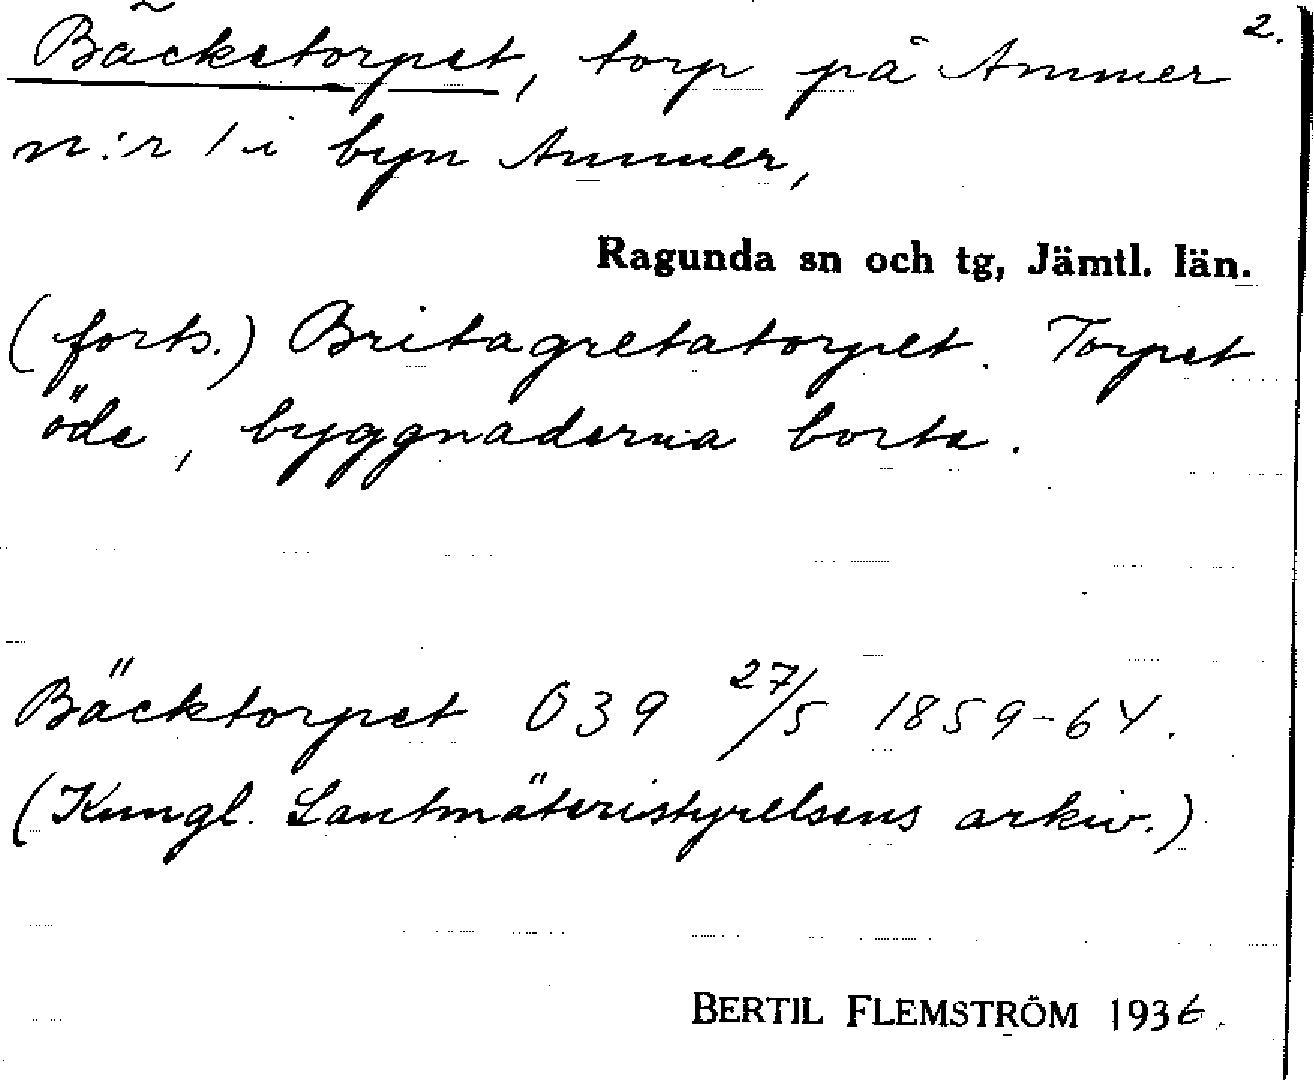 Bäcketorpet, torp på Ammer 2.
n:r 1 i byn Ammer,
Ragunda sn och tg, Jämtl. län.
(forts.) Britagretatorpet. Torpet
öde, byggnaderna borta.
Bäcktorpet O39 27/5 1859-64.
(Kungl. Lantmäteristyrelsens arkiv.)
BERTIL FLEMSTRÖM 1936.